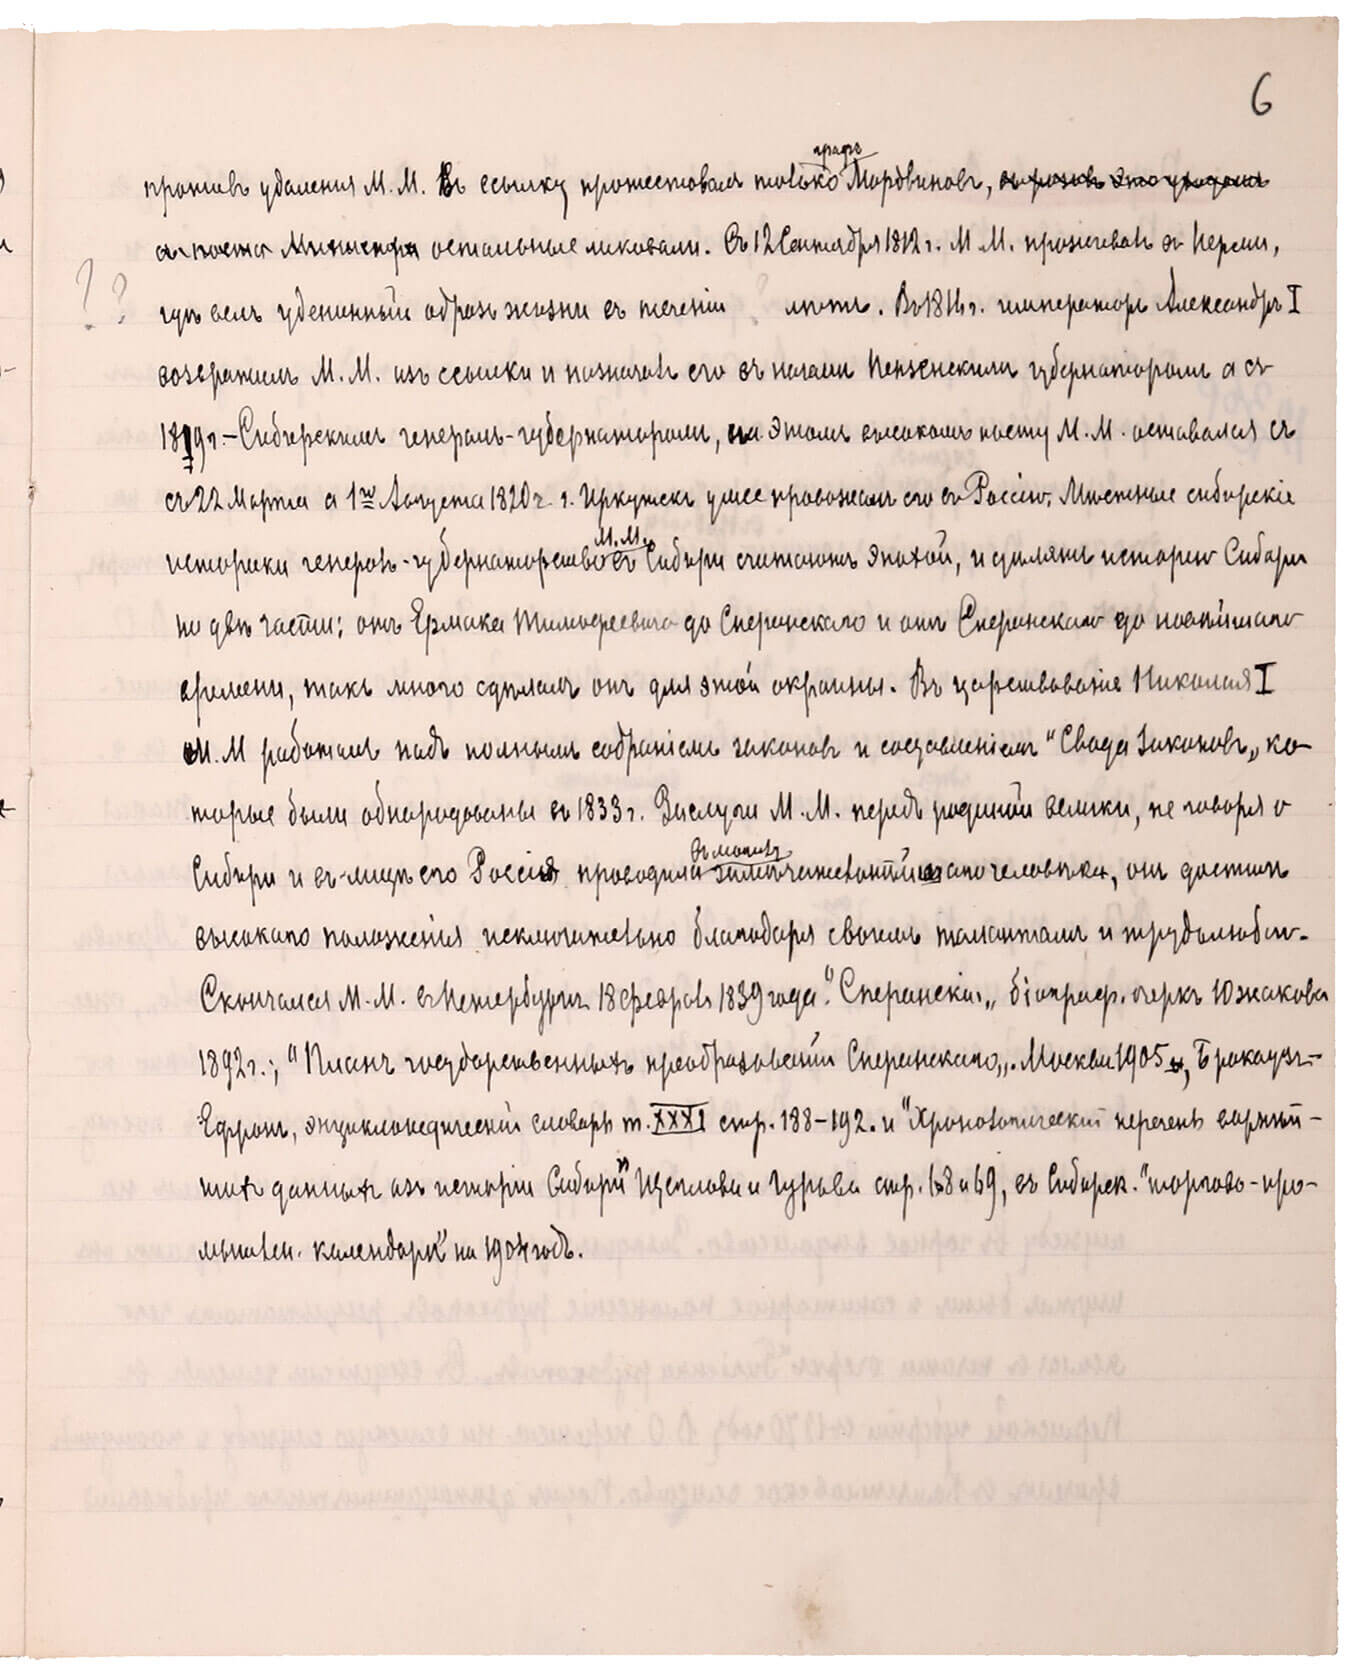 6
графъ
противъ удаленія М. М. въ ссылку протестовалъ только Мордвиновъ,
остальные ликовали. Съ 12 Сентября 1812 г. М. М. проживалъ въ Перми,
? ? гдѣ велъ уединенный образъ жизни въ теченіи ? лѣтъ. Въ 1816 г. императоръ Александръ I
возвратилъ М. М. изъ ссылки и назначилъ его въ началѣ Пензенскимъ губернаторомъ а съ
1819 г. – Сибирскимъ генералъ-губернаторомъ, на этомъ высокомъ посту М. М. оставался съ
съ 22 Марта а 1го Августа 1820 г. г. Иркутскъ уже провожалъ его въ Россію. Мѣстные сибирскіе
М. М.
историки генералъ-губернаторство въ Сибири считаютъ эпохой, и дѣлятъ исторію Сибири
на двѣ части: отъ Ермака Тимофеевича до Сперанскаго и отъ Сперанскаго до новѣйшаго
времени, такъ много сдѣлалъ онъ для этой окраины. Въ царствованіе Николая I
М. М работалъ надъ полнымъ собраніемъ законовъ и составленіемъ "Свода Законовъ„ ко-
торые были обнародованы въ 1833 г. Заслуги М. М. передъ родиной велики, не говоря о
въ могилу
Сибири и въ лицѣ его Россія проводила замѣчательнѣйшаго человѣка, онъ достигъ
высокаго положенія исключительно благодаря своимъ талантамъ и трудолюбію.
Скончался М. М. въ Петербургѣ 18 февраля 1839 года. "Сперанскій„ біограф. очеркъ Южакова
1892 г.; "Планъ государственныхъ преобразованій Сперанскаго„. Москва 1905, Брокаузъ-
Ефронъ, энциклопедическій словарь т. XXXI стр. 188–192. и "Хронологическій перечень важнѣй-
шихъ данныхъ изъ исторіи Сибири" Щеглова и Гурьева стр. 68 и 69, въ Сибирск. "торгово-про-
мышлен. календарѣ" на 1904 годъ.